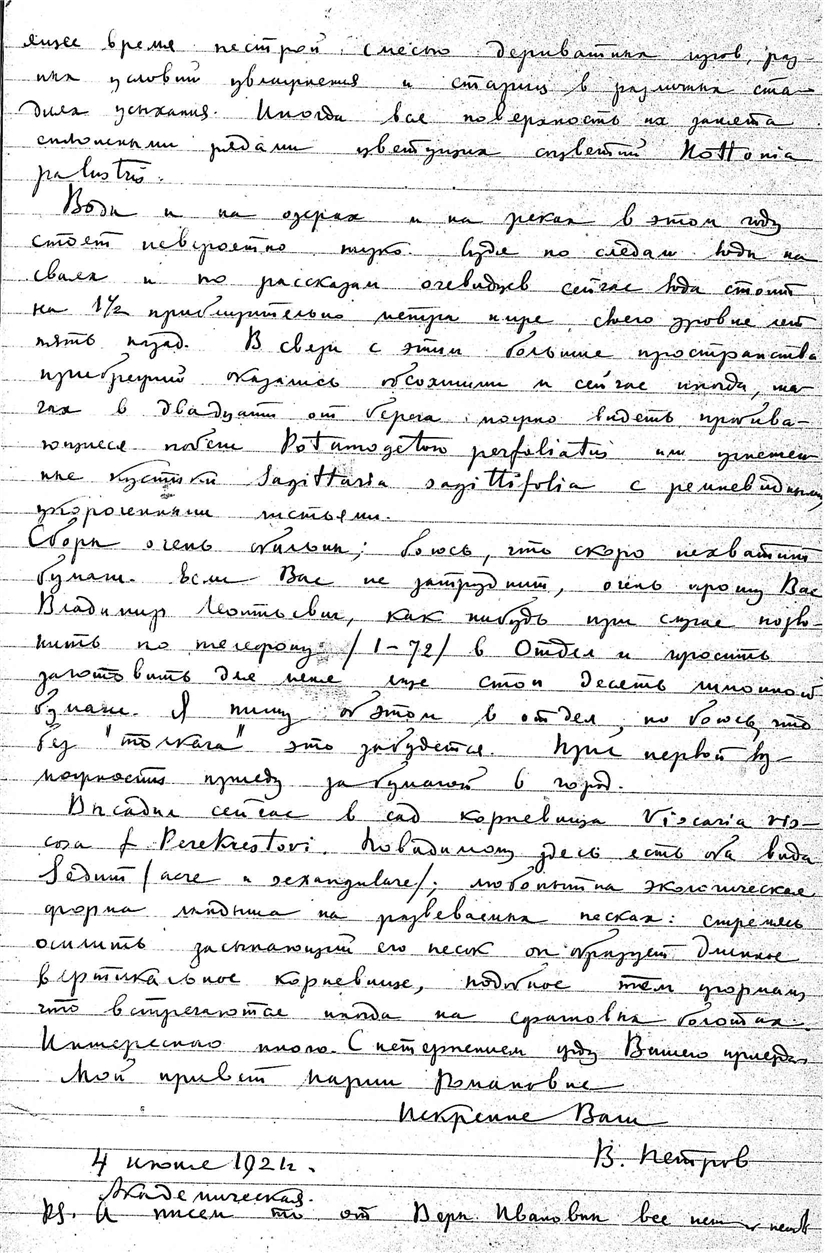 ящее время пестрой смесью дериватина лугов, раз-
ных условий увлажнения и стариц в различных ста-
диях усыхания. Иногда вся поверхность их занята
сплошными рядами цветущих соцветий Hottonia
palustris.
Воды и на озерах и на реках в этом году
стоит невероятно мало. Судя по следам воды на
сваях и по рассказам очевидцев сейчас вода стоит
на 1½ приблизительно метра ниже своего уровня лет
пять назад. В связи с этим большие пространства
прибрежий оказались обсохшими и сейчас иногда, ша-
гах в двадцати от берега можно видеть пробива-
ющиеся побеги Potamogeton perfoliatus или угнетен-
ные кустики Sagittaria sagittifolia с ремневидными
укороченными листьями.
Сборы очень обильны; боюсь, что скоро нехватит
бумаги. Если Вас не затруднит, очень прошу Вас
Владимир Леонтьевич, как нибудь при случае позво-
нить по телефону /1-72/ в Отдел и просить
заготовить для меня еще стоп десять
бумаги. Я пишу об этом в отдел, но боюсь, что
без "толкача" это забудется. При первой воз-
можности приеду за бумагой в город.
Высадил сейчас в сад корневища Viscaria vis-
cosa f. Perekrestovi. Повидимому здесь есть оба вида
Sedum /acre и sexangulare/; любопытна экологическая
форма ландыша на развеваемых песках: стремясь
осилить засыпающий его песок он образует длинное
вертикальное корневище, подобное тем формам,
что встречаются иногда на сфагновых болотах.
Интересного много. С нетерпением жду Вашего приезда.
Мой привет Марии Романовне
Искренне Ваш
В. Петров
4 июня 1921 г.
Академическая.
PS. А писем то от Веры Ивановны все нет и нет